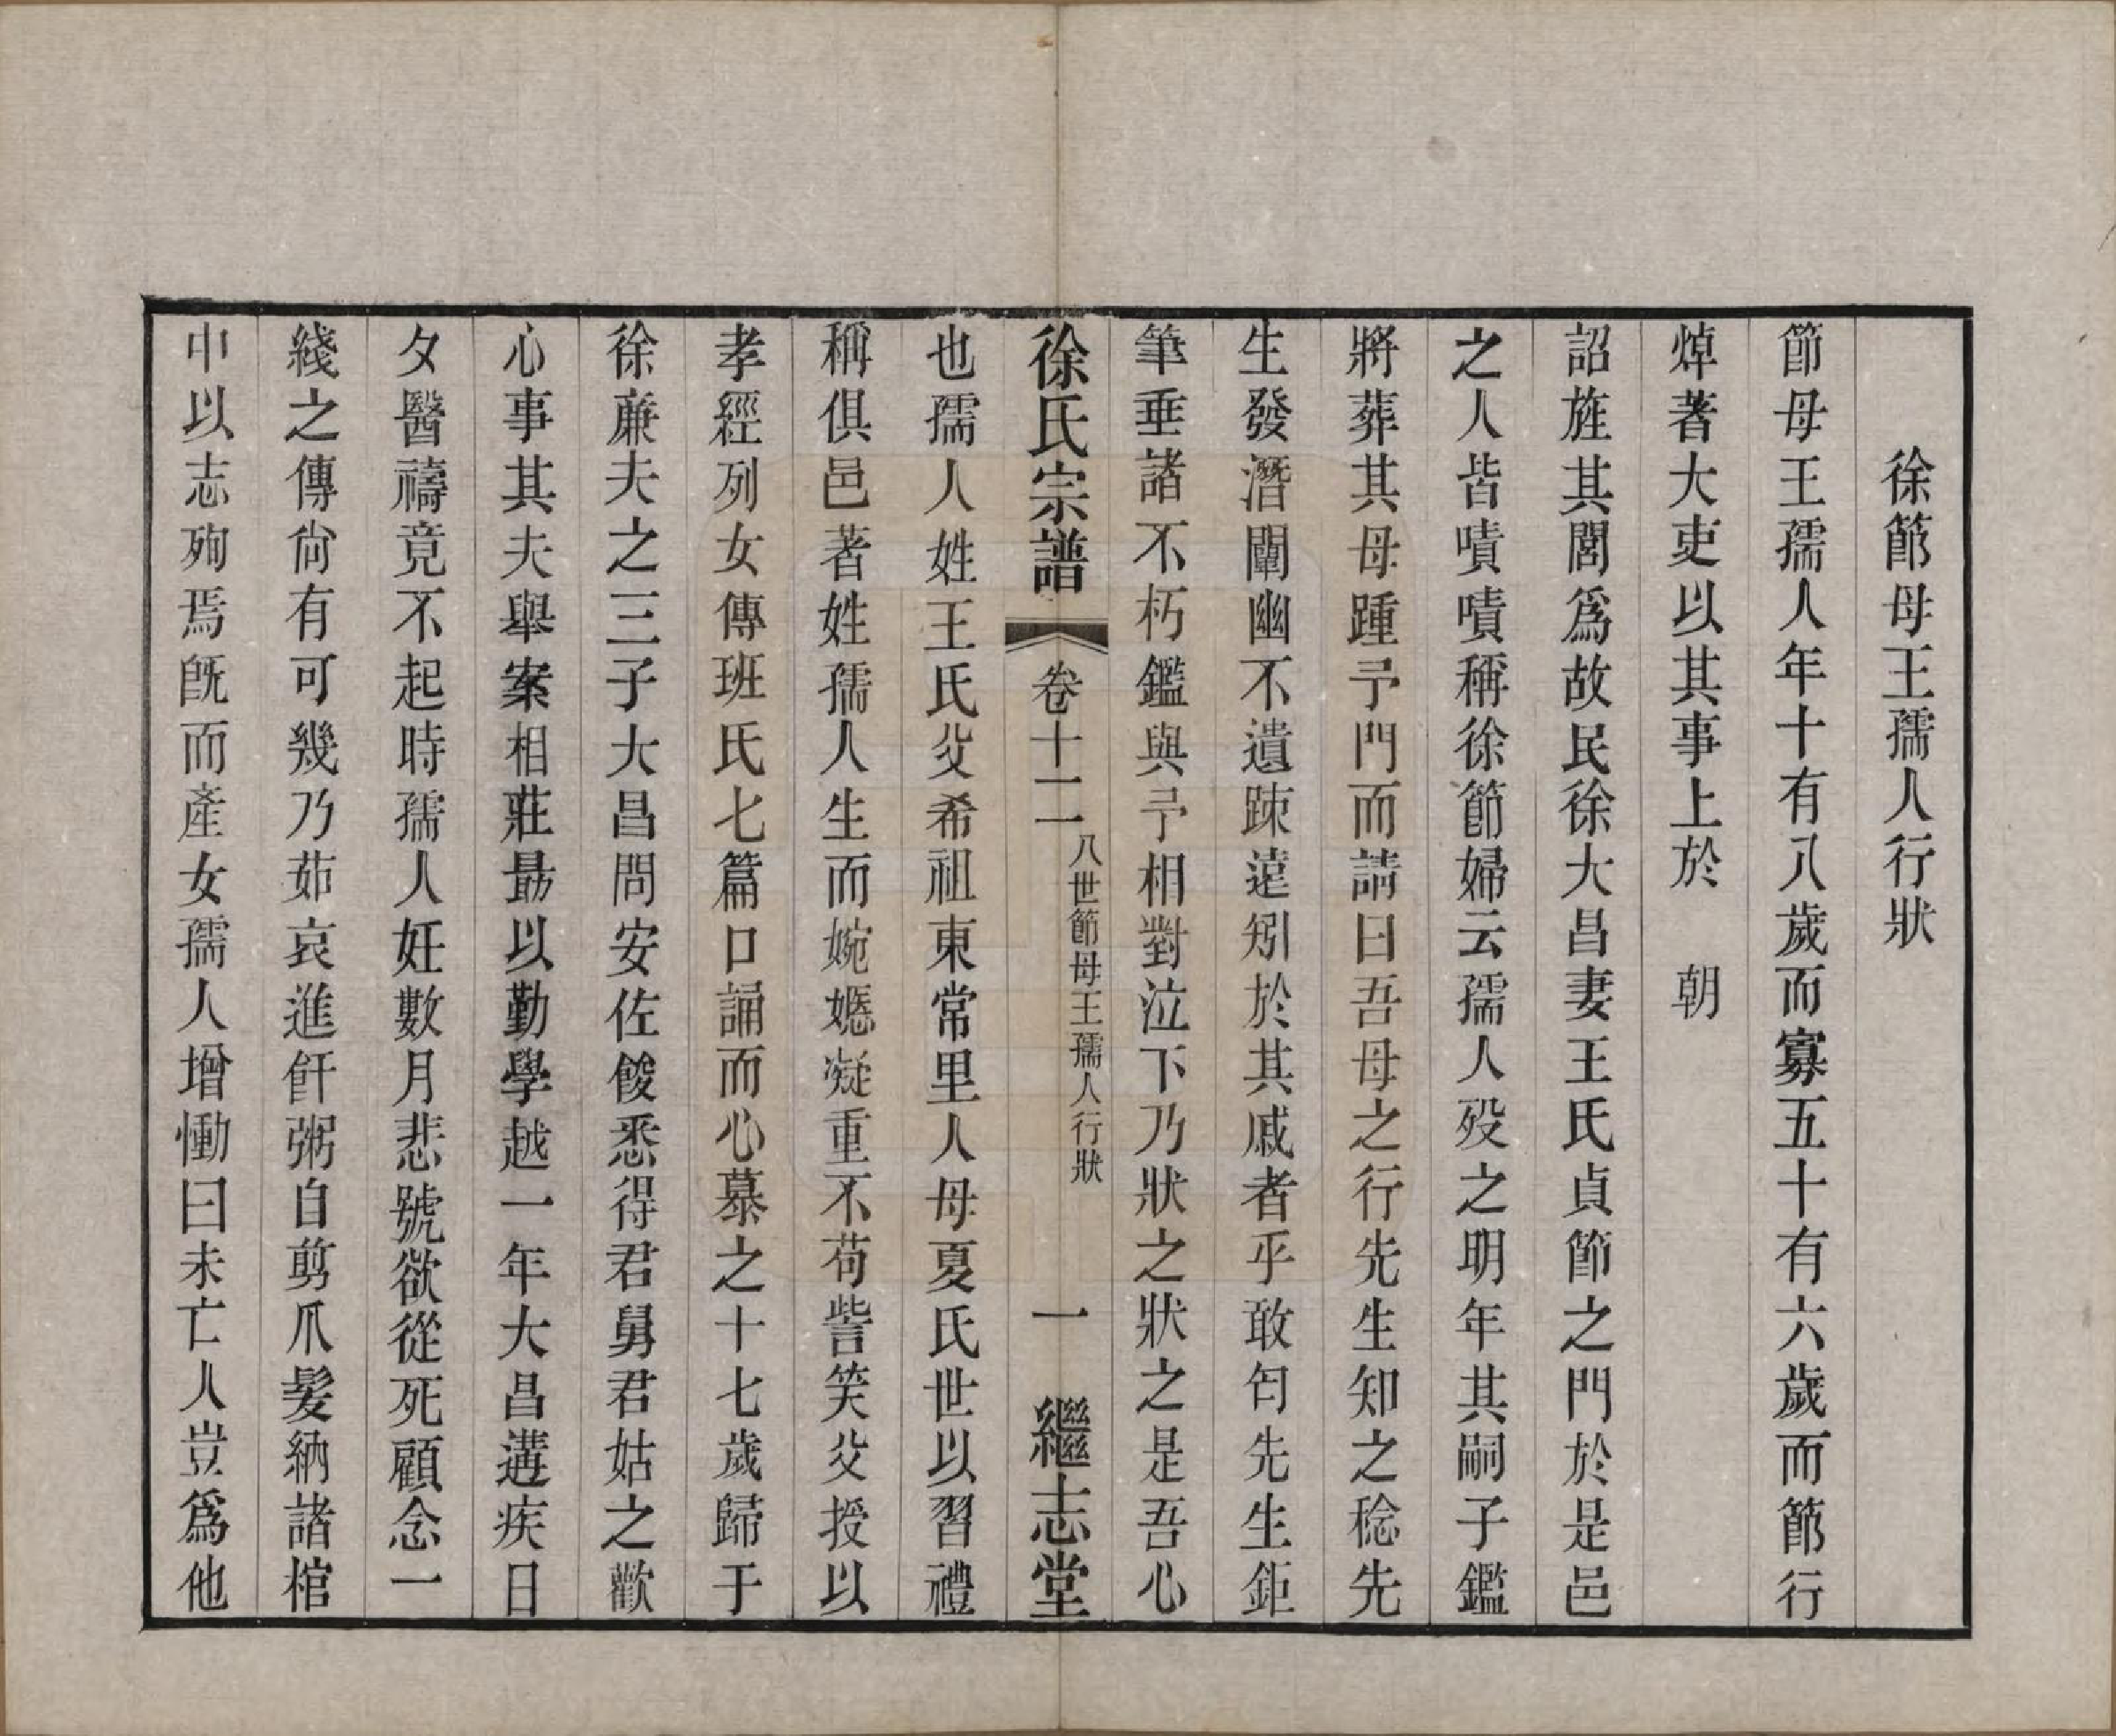 徐節母王孺人行狀
節母王孺人年十有八歲而寡五十有六歲而節行
焯著大吏以其事上於　朝
詔旌其閭爲故民徐大昌妻王氏貞節之門於是邑
之人皆嘖嘖稱徐節婦云孺人歿之明年其嗣子鑑
將葬其母踵予門而請曰吾母之行先生知之稔先
生發潛闡幽不遺踈遠矧於其戚者乎敢匄先生鉅
筆垂諸不朽鑑與予相對泣下乃狀之狀之是吾心
徐氏宗譜　卷十二　八世節母王孺人行狀　一　繼志堂
也孺人姓王氏父希祖東常里人母夏氏世以習禮
稱俱邑著姓孺人生而婉嫕凝重不苟訾笑父授以
孝經列女傳班氏七篇口誦而心慕之十七歲歸于
徐廉夫之三子大昌問安佐餕悉得君舅君姑之歡
心事其夫舉案相莊朂以勤學越一年大昌遘疾日
夕醫禱竟不起時孺人妊數月悲號欲從死顧念一
綫之傳尙有可幾乃茹哀進飦粥自剪爪髮納諸棺
中以志殉焉旣而產女孺人增慟曰未亡人豈爲他